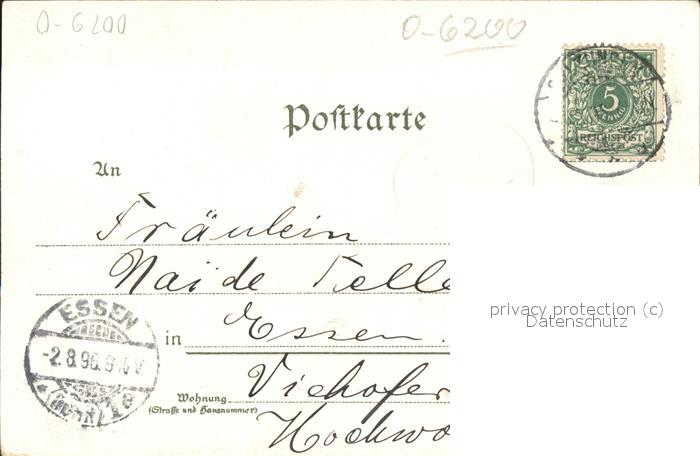 O-6200
O-6200
5
PFENNIG
REICHSPOST
Postkarte
An
Fräulein
Naide
privacy protection (c)
Datenschutz
ESSEN
-2.8.96.9
(RUHR)
in Essen.
Wohnung
(Straße und Hausnummer)
Viehofer